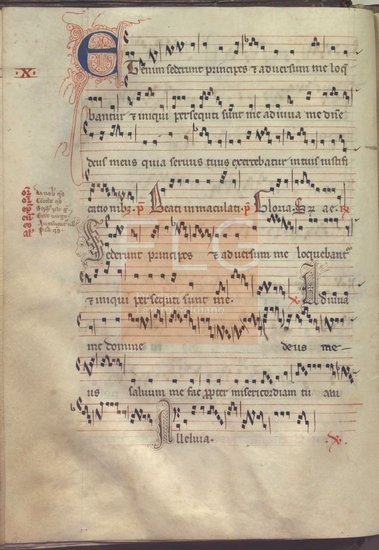 ·X·
Etenim sederunt principes & adversum me loq
bantur & iniqui persecuti sunt me adiuva me dñe
deus meus quia servus tuus exercebatur in tuis iustifi
cationibꝫ. p̃ Beati inmaculati. p̃ Gloria. ae.
Sederunt principes & adversum me loquebantʳ
& iniqui persecuti sunt me. Adiuva
me domine deus me
us salvum me fac propter misericordiam tu am
Alleluia.